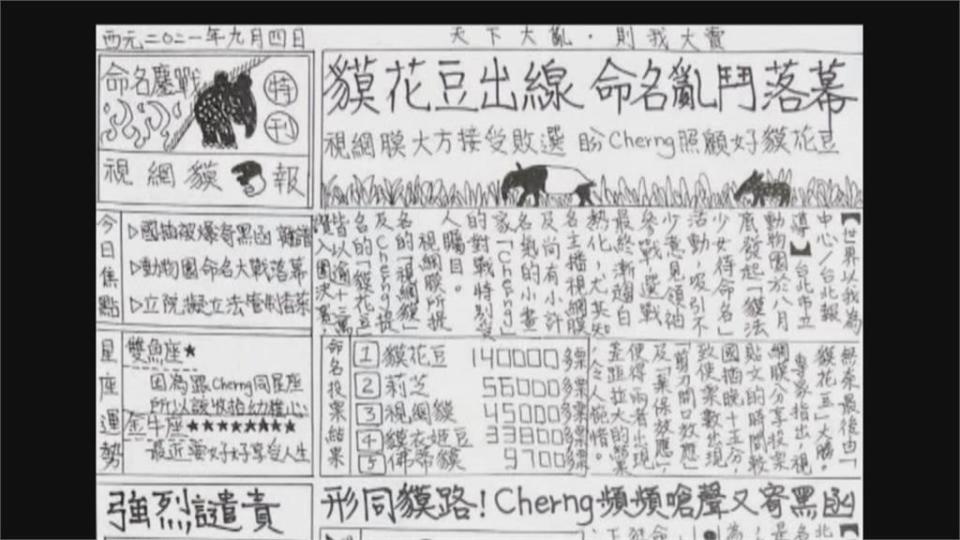 西元二〇二一年九月四日
天下大亂·則我大賣
命名鏖戰
特刊
視網貘報
貘花豆出線 命名亂鬥落幕
視網膜大方接受敗選 盼Cherng照顧好貘花豆
今日焦點
▷國抽被爆寄黑函 雜譜
▷動物園命名大戰落幕
▷立院擬立法管制香菜
星座運勢
雙魚座★
因為跟Cherng同星座
所以該收拾幼稚心
金牛座★★★★★★★★
最近要好好享受人生
【世界以我為
中心/台北報
導】台北市立
動物園於八月
底發起「貘法
少女待命名」
活動,吸引不
少意見領袖
參戰,選戰
最終漸趨白
熱化,尤其知
名主播視網膜
及尚有小計
名氣的小畫
家「Cherng」
的對戰特別受
人矚目。
視網膜所提
名的「視網貘」
及Cherng提
名的「貘花豆」
皆以逾十三萬
讚入圍決賽,
無奈最後由「
貘花豆」大勝。
專家指出,視
網膜分享投票
貼文的時間較
國抽晚十五分,
致使票數出現
「剪刀開口效應」
及「棄保效應」,
使得兩者出現
差距拉大的結果
,令人惋惜。
命名投票結果
1 貘花豆 140000多票
2 莉芝 56000多票
3 視網貘 45000多票
4 貘衣姬豆 33800多票
5 佛蒂貘 9700多票
強烈譴責
形同貘路!Cherng頻頻嗆聲又寄黑函